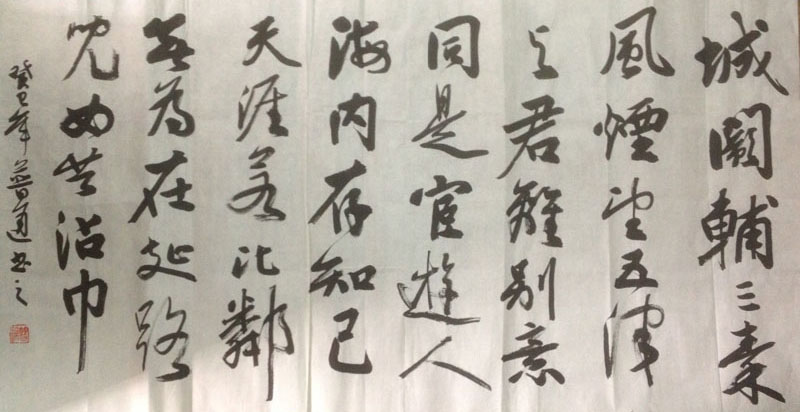 城闕輔三秦
風煙望五津
与君離別意
同是宦遊人
海内存知己
天涯若比鄰
無為在歧路
兒女共沾巾
癸巳年普书之